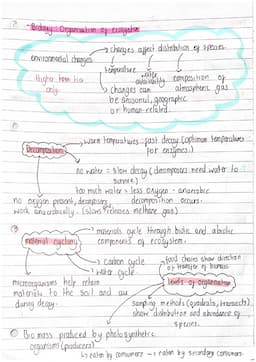 Biology: Organisation of ecosystem
changes affect distribution of species.
environmental changes
temperature
water availability
composition of atmospheric gas
Higher tier
only
changes can
be seasonal, geographic
or human-related.
warm temperatures: fast decay (optimum temperatures
for enzymes.)
Decomposition
no water = slow decay (decomposers need water to
survive.)
too much water = less oxygen - anaerobic
decomposition occurs.
no oxygen present, decomposers
work anaerobically. (slows release methane gas)
materials cycle through biotic and abiotic
components of ecosystem.
material cycling
carbon cycle
water cycle.
food chains show direction
of transfer of biomass
microorganisms help return
materials to the soil and air
during decay.
levels of organisation
sampling methods (quadrats, transects)
show distribution and abundance of
species.
Biomass produced by photosynthetic
organisms (producers)
eaten by consumers → eaten by secondary consumers